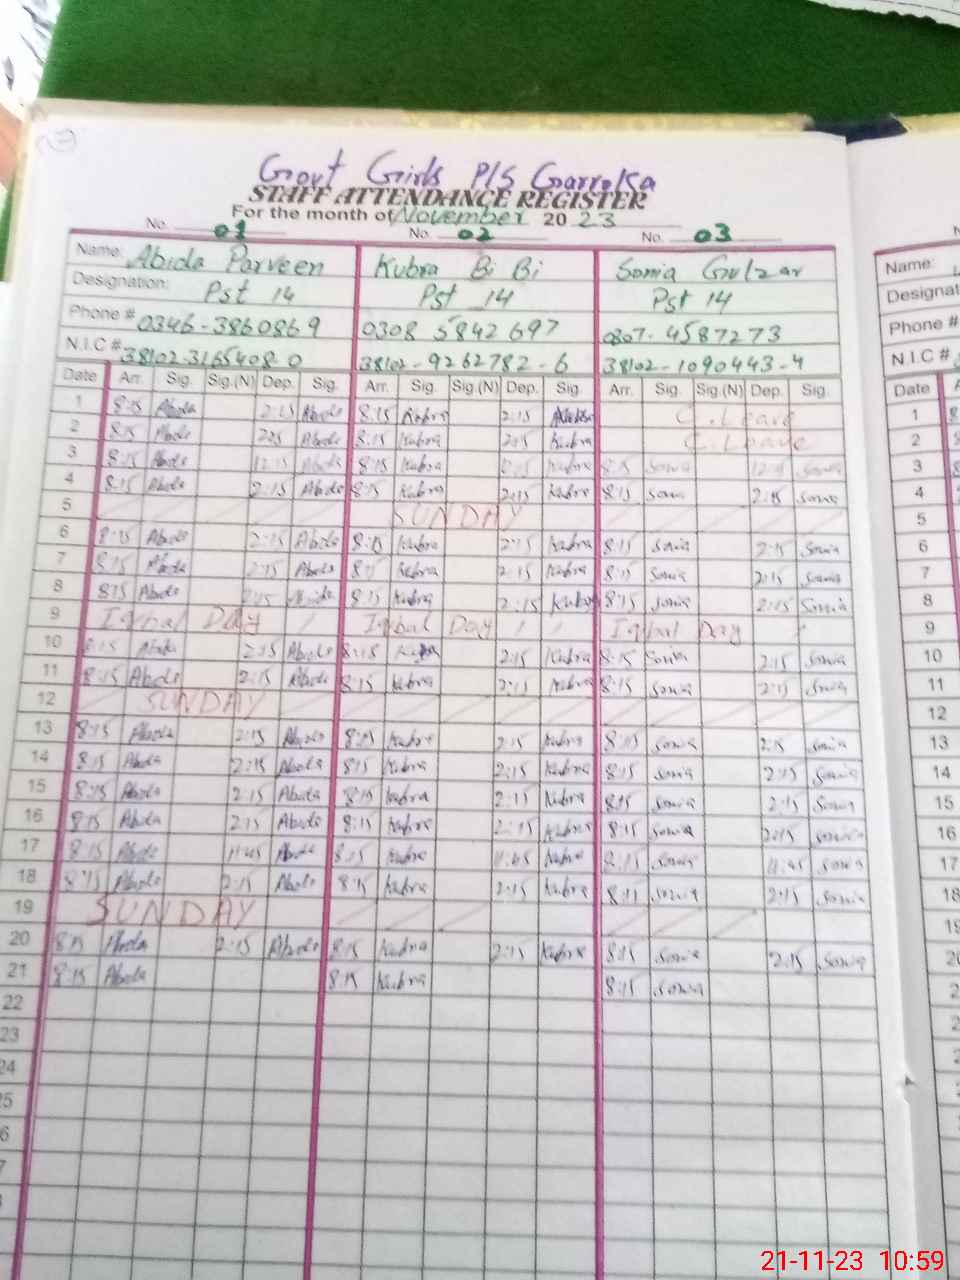 Govt Girls P/S Garroka
STAFF ATTENDANCE REGISTER
For the month of November 2023
No. 01 No. 02 No. 03
Name: Abida Parveen Kubra Bi Bi Sonia Gulzar Name:
Designation: Pst 14 Pst 14 Pst 14 Designat
Phone # 0346-3860869 0308 5842697 0307-4587273 Phone #
N.I.C # 38102-3165408-0 38102-9262782-6 38102-1090443-4 N.I.C #
Date Arr. Sig. Sig.(N) Dep. Sig. Arr. Sig. Sig.(N) Dep. Sig. Arr. Sig. Sig.(N) Dep. Sig. Date
1 8:15 Abida 2:15 Abida 8:15 Kubra 2:15 Kubra C.Leave 1
2 8:15 Abida 2:15 Abida 8:15 Kubra 2:15 Kubra C.Leave 2
3 8:15 Abida 12:15 Abida 8:15 Kubra Kubra 8:15 Sonia Sonia 3
4 8:15 Abida 2:15 Abida 8:15 Kubra 2:15 Kubra 8:15 Sonia 2:15 Sonia 4
5 SUNDAY 5
6 8:15 Abida 2:15 Abida 8:15 Kubra 2:15 Kubra 8:15 Sonia 2:15 Sonia 6
7 8:15 Abida 2:15 Abida 8:15 Kubra 2:15 Kubra 8:15 Sonia 2:15 Sonia 7
8 8:15 Abida 2:15 Abida 8:15 Kubra 2:15 Kubra 8:15 Sonia 2:15 Sonia 8
9 Iqbal Day Iqbal Day Iqbal Day 9
10 8:15 Abida 2:15 Abida 8:15 Kubra 2:15 Kubra 8:15 Sonia 2:15 Sonia 10
11 8:15 Abida 2:15 Abida 8:15 Kubra 2:15 Kubra 8:15 Sonia 2:15 Sonia 11
12 SUNDAY 12
13 8:15 Abida 2:15 Abida 8:15 Kubra 2:15 Kubra 8:15 Sonia 2:15 Sonia 13
14 8:15 Abida 2:15 Abida 8:15 Kubra 2:15 Kubra 8:15 Sonia 2:15 Sonia 14
15 8:15 Abida 2:15 Abida 8:15 Kubra 2:15 Kubra 8:15 Sonia 2:15 Sonia 15
16 8:15 Abida 2:15 Abida 8:15 Kubra 2:15 Kubra 8:15 Sonia 2:15 Sonia 16
17 8:15 Abida 11:45 Abida 8:15 Kubra 11:45 Kubra 8:15 Sonia 11:45 Sonia 17
18 8:15 Abida 2:15 Abida 8:15 Kubra 2:15 Kubra 8:15 Sonia 2:15 Sonia 18
19 SUNDAY
20 8:15 Abida 2:15 Abida 8:15 Kubra 2:15 Kubra 8:15 Sonia 2:15 Sonia
21 8:15 Abida 8:15 Kubra 8:15 Sonia
22
23
24
21-11-23 10:59